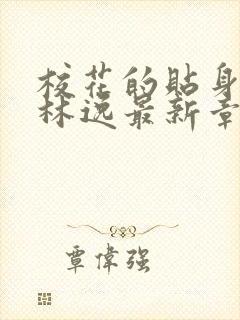 校花的貼身
林逸最新章
覃偉強